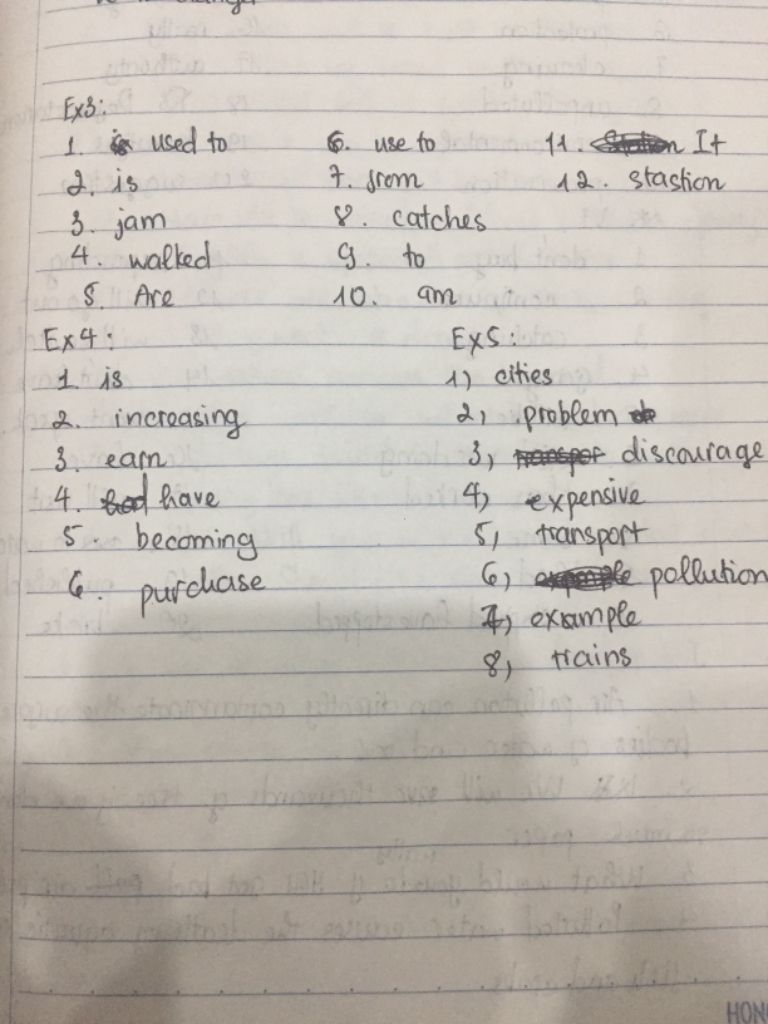 Ex3:
1. used to
2. is
3. jam
4. walked
5. Are
6. use to
7. from
8. catches
9. to
10. am
11. It
12. stastion
Ex4:
1. is
2. increasing
3. earn
4. have
5. becoming
6. purchase
Ex5:
1) cities
2) problem
3) discourage
4) expensive
5) transport
6) pollution
7) example
8) trains